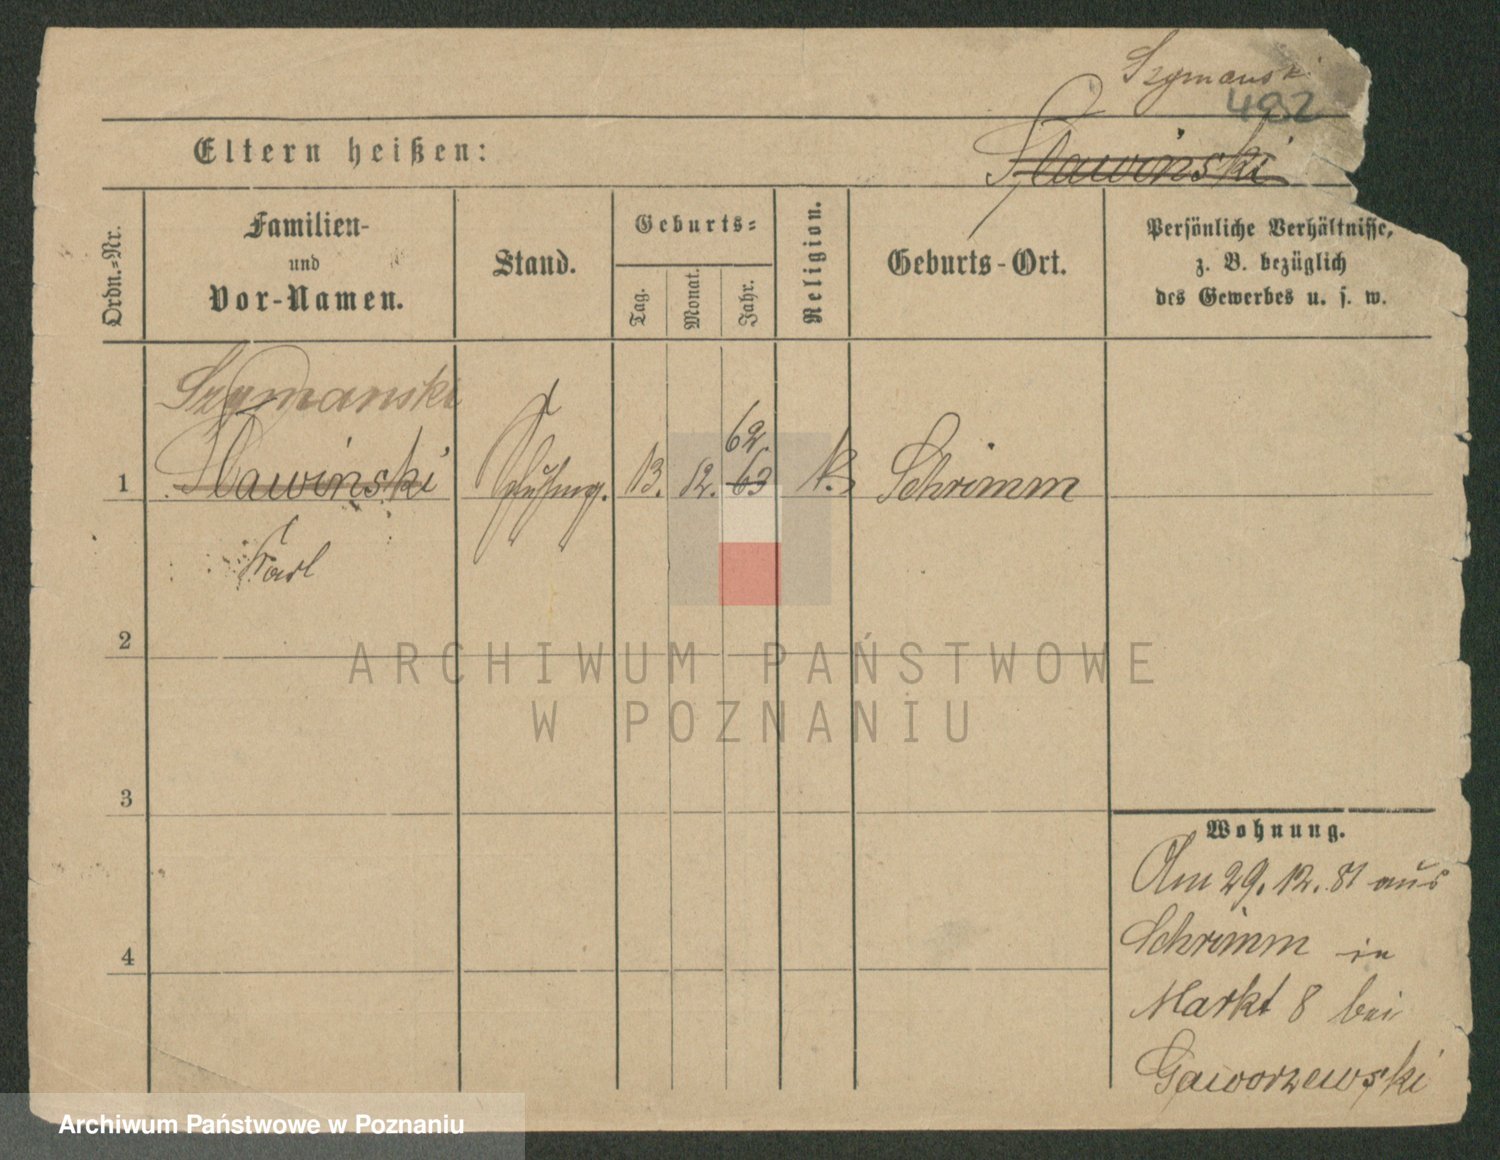 Szymanski
492
Eltern heißen:
Slawinski
Ordn.-Nr.
Familien-
und
Vor-Namen.
Stand.
Geburts-
Tag.
Monat.
Jahr.
Religion.
Geburts-Ort.
Persönliche Verhältnisse,
z. B. bezüglich
des Gewerbes u. s. w.
Szymanski
62.
1 Slawinski 13. 12. 63 K. Schrimm
Karl
2
3
4
Wohnung.
Am 29. 12. 81 aus
Schrimm in
Markt 8 bei
Gaworzewski
ARCHIWUM PAŃSTWOWE
W POZNANIU
Archiwum Państwowe w Poznaniu